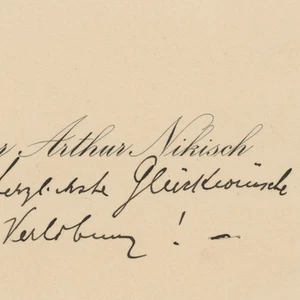 r Arthur Nikisch
herzlichste Glückwünsche
Verlobung ! –